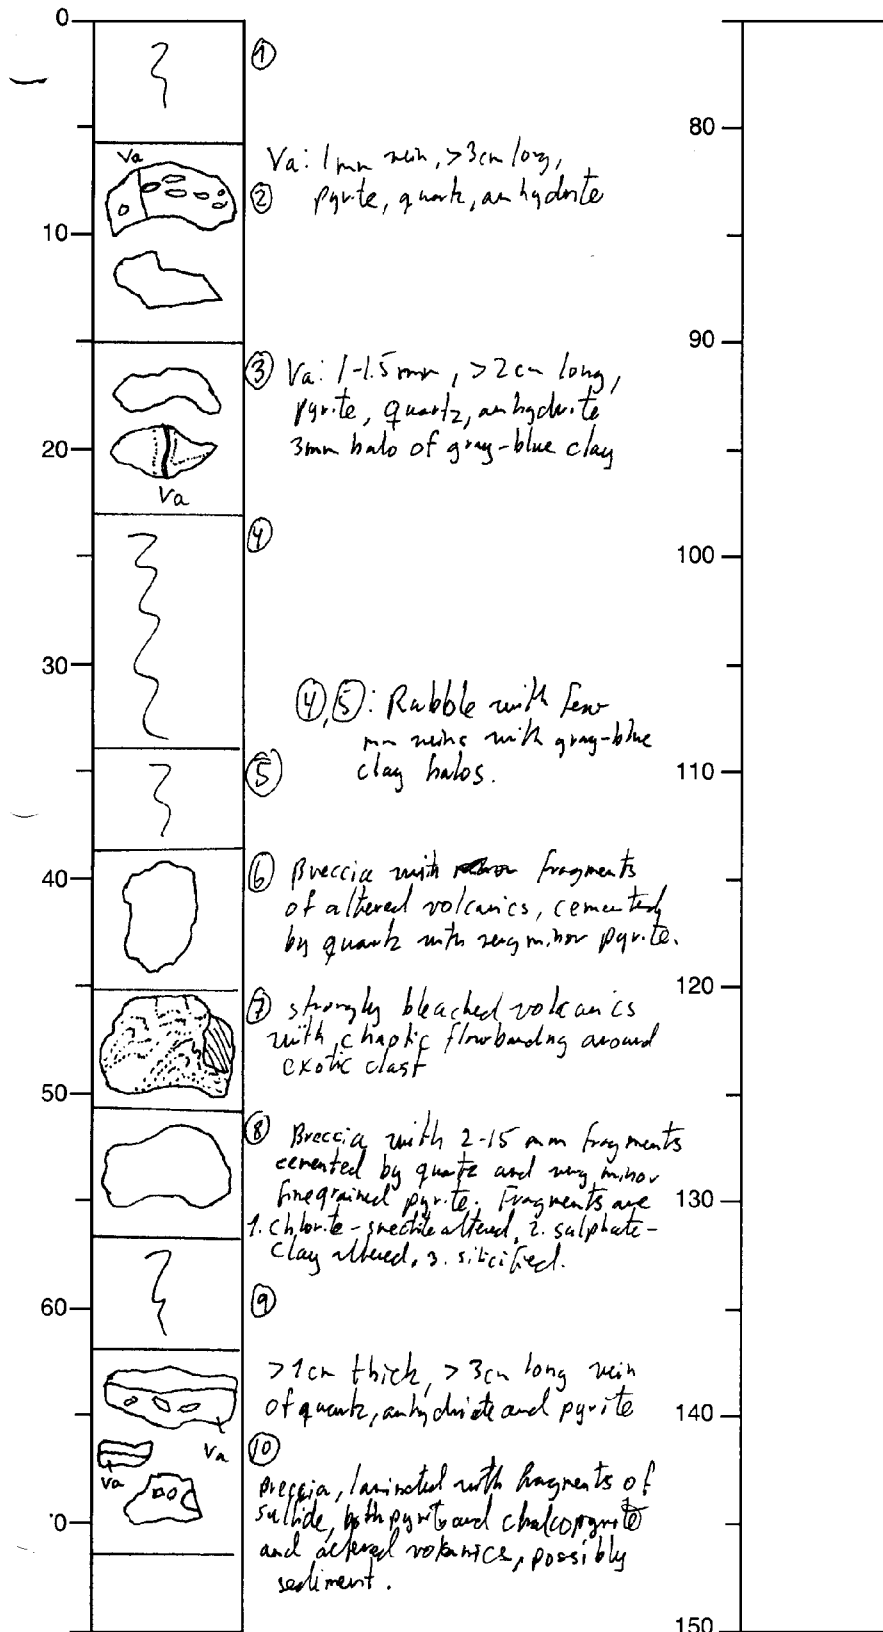 0
①
Va
Va: 1mm vein, >3cm long,
② pyrite, quartz, anhydrite
80
10
90
③ Va: 1-1.5mm, >2cm long,
pyrite, quartz, anhydrite
3mm halo of gray-blue clay
20
Va
④
100
30
④,⑤: Rubble with few
mm veins with gray-blue
clay halos.
⑤
110
40
⑥ Breccia with fragments
of altered volcanics, cemented
by quartz with very minor pyrite.
120
⑦ strongly bleached volcanics
with chaotic flowbanding around
exotic clast
50
⑧ Breccia with 2-15 mm fragments
cemented by quartz and very minor
finegrained pyrite. Fragments are
1. chlorite-smectite altered, 2. sulphate-
clay altered, 3. silicified.
130
60
⑨
>1cm thick, >3cm long vein
of quartz, anhydrite and pyrite
140
Va
Va
⑩
Breccia, laminated with fragments of
sulfide, both pyrite and chalcopyrite
and altered volcanics, possibly
sediment.
70
150